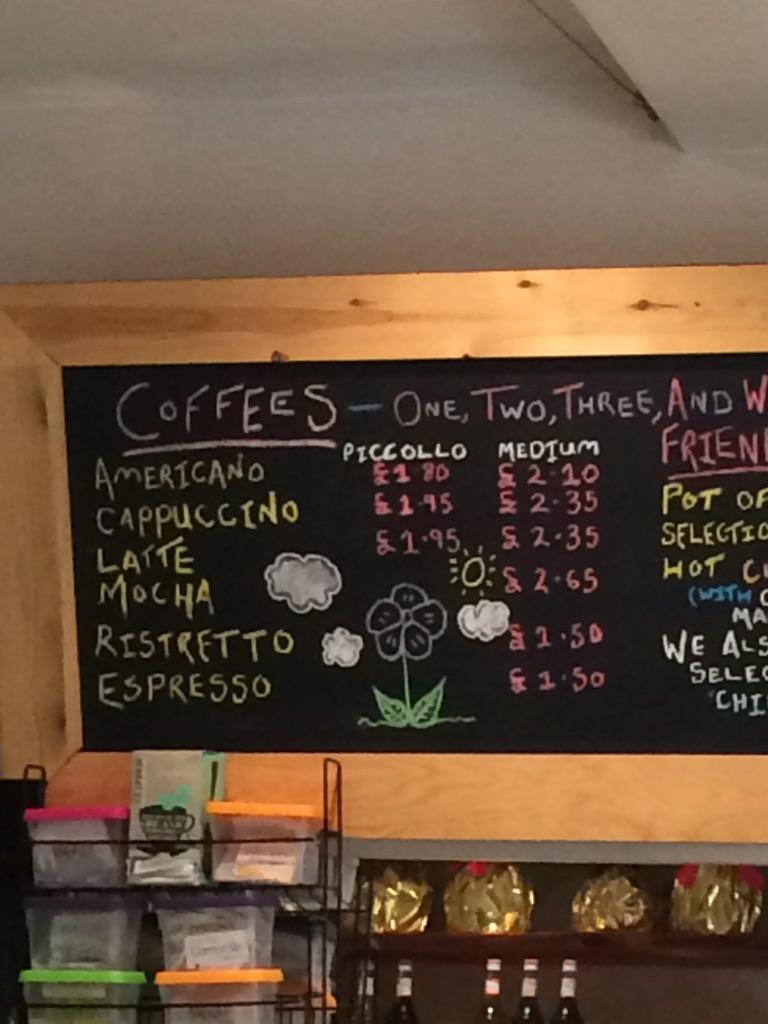 COFFEES - ONE, TWO, THREE, AND
PICCOLLO MEDIUM
AMERICANO £1.80 £2.10
CAPPUCCINO £1.95 £2.35
LATTE £1.95 £2.35
MOCHA £2.65
RISTRETTO £1.50
ESPRESSO £1.50
FRIEN
POT OF
SELECTIO
HOT C
(WITH
MA
WE ALS
SELEC
'CHI